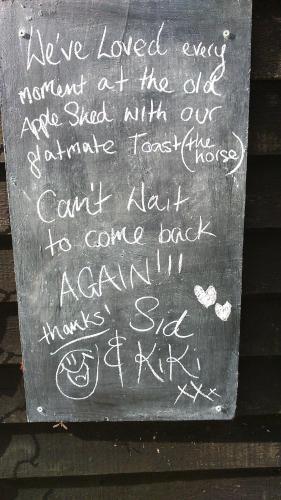 We've Loved every
moment at the old
Apple Shed with our
flatmate Toast (the
horse)
Can't Wait
to come back
AGAIN!!!
thanks! Sid
& KiKi
xxx